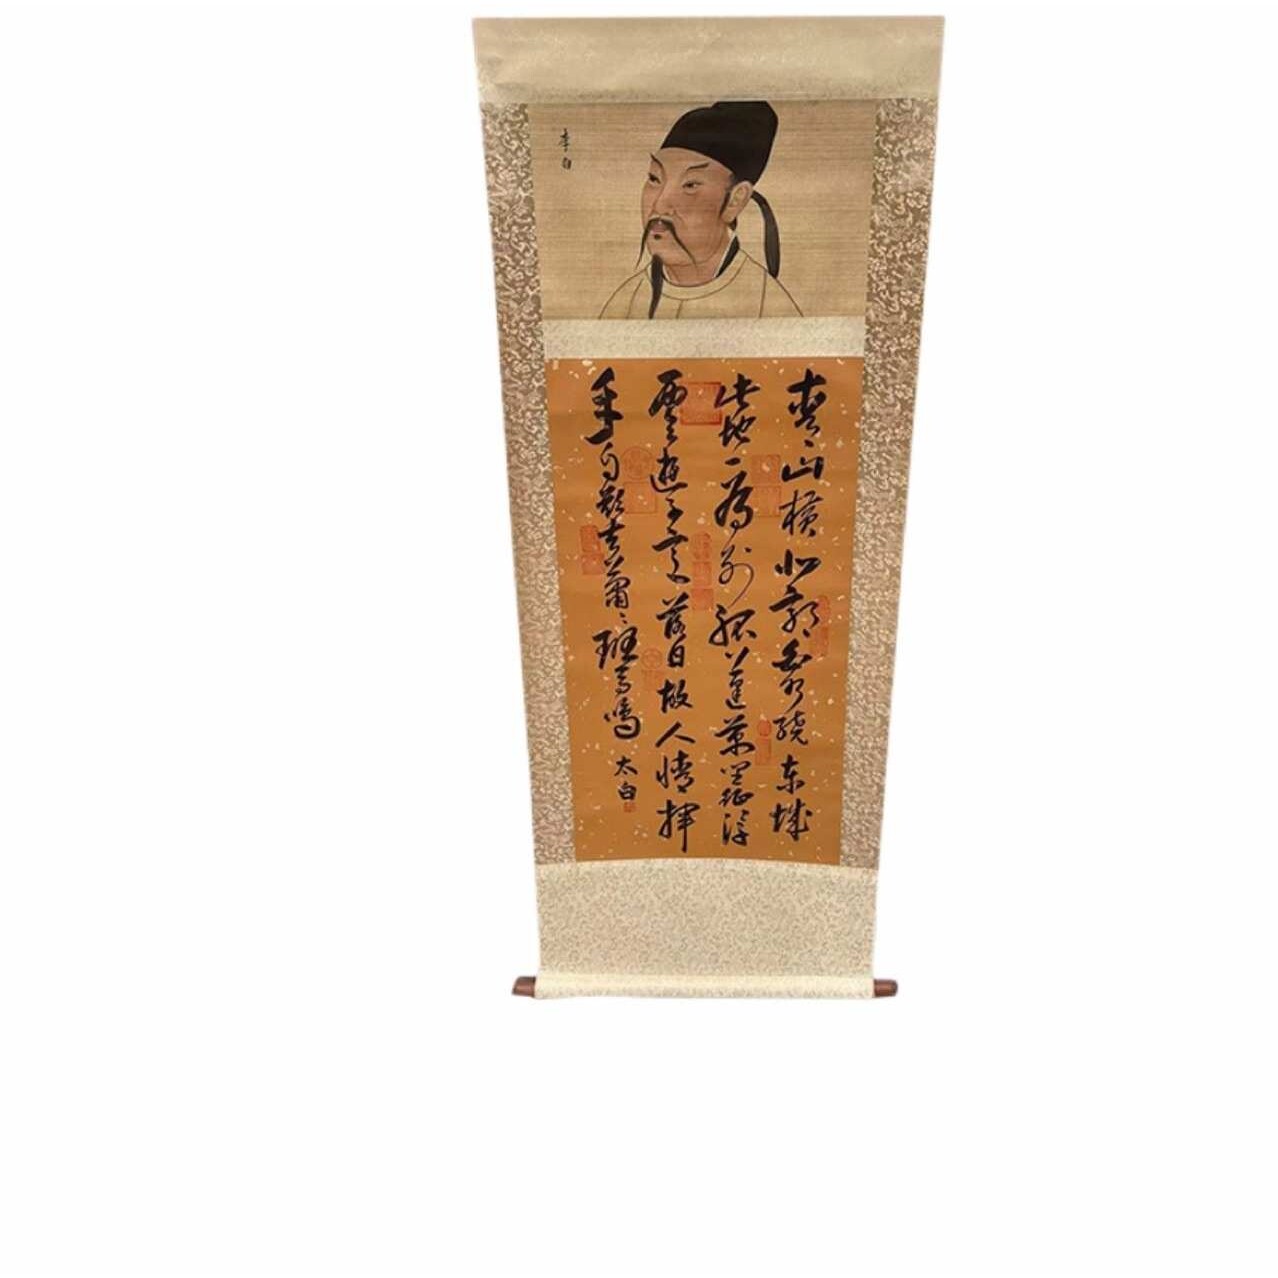 李白
青山横北郭白水绕东城
此地一为别孤蓬万里征浮
雲遊子意落日故人情挥
手自兹去萧々班马鸣
太白